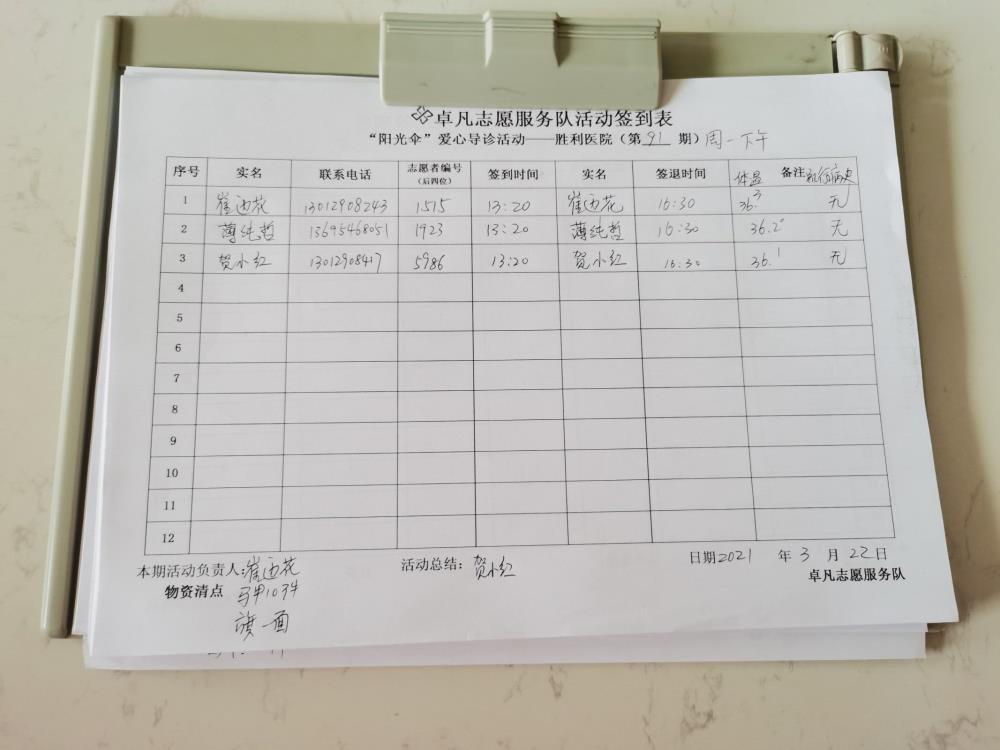 卓凡志愿服务队活动签到表
“阳光伞”爱心导诊活动——胜利医院（第 91 期）周一下午
序号 实名 联系电话 志愿者编号（后四位） 签到时间 实名 签退时间 体温 备注 旅行病史
1 崔迎花 13012908243 1515 13:20 崔迎花 16:30 36.3 无
2 薄纯哲 13695468051 1923 13:20 薄纯哲 16:30 36.2° 无
3 贺小红 13012908417 5986 13:20 贺小红 16:30 36.1 无
4
5
6
7
8
9
10
11
12
本期活动负责人:崔迎花 活动总结：贺小红 日期2021 年 3 月 22 日
物资清点 马甲10件 卓凡志愿服务队
旗一面